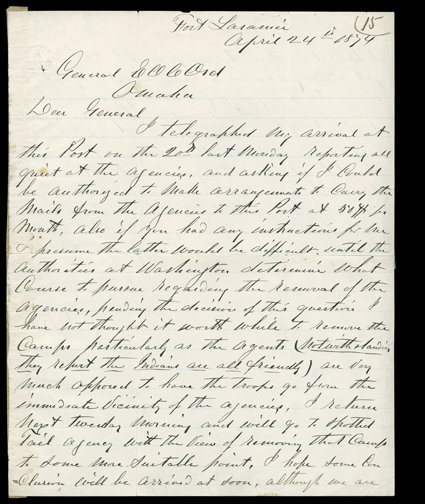 15
Fort Laramie
April 24th 1874
General E O C Ord
Omaha
Dear General
I telegraphed my arrival at
this Post on the 20th last Monday reporting all
quiet at the agencies, and asking if I could
be authorized to make arrangements to carry the
mails from the agencies to this Post at pr
Month, also if you had any instructions for me
I presume the latter would be difficult until the
authorities at Washington determine what
Course to pursue regarding the removal of the
agencies, pending the decision of this question I
have not thought it worth while to remove the
Camps particularly as the agents (notwithstanding
they report the Indians are all friendly) are very
much opposed to have the troops go from the
immediate vicinity of the agencies, I return
next tuesday morning and will go to Spotted
Tail agency with the view of removing that Camp
to some more suitable point, I hope some Con
-clusion will be arrived at soon, although we are